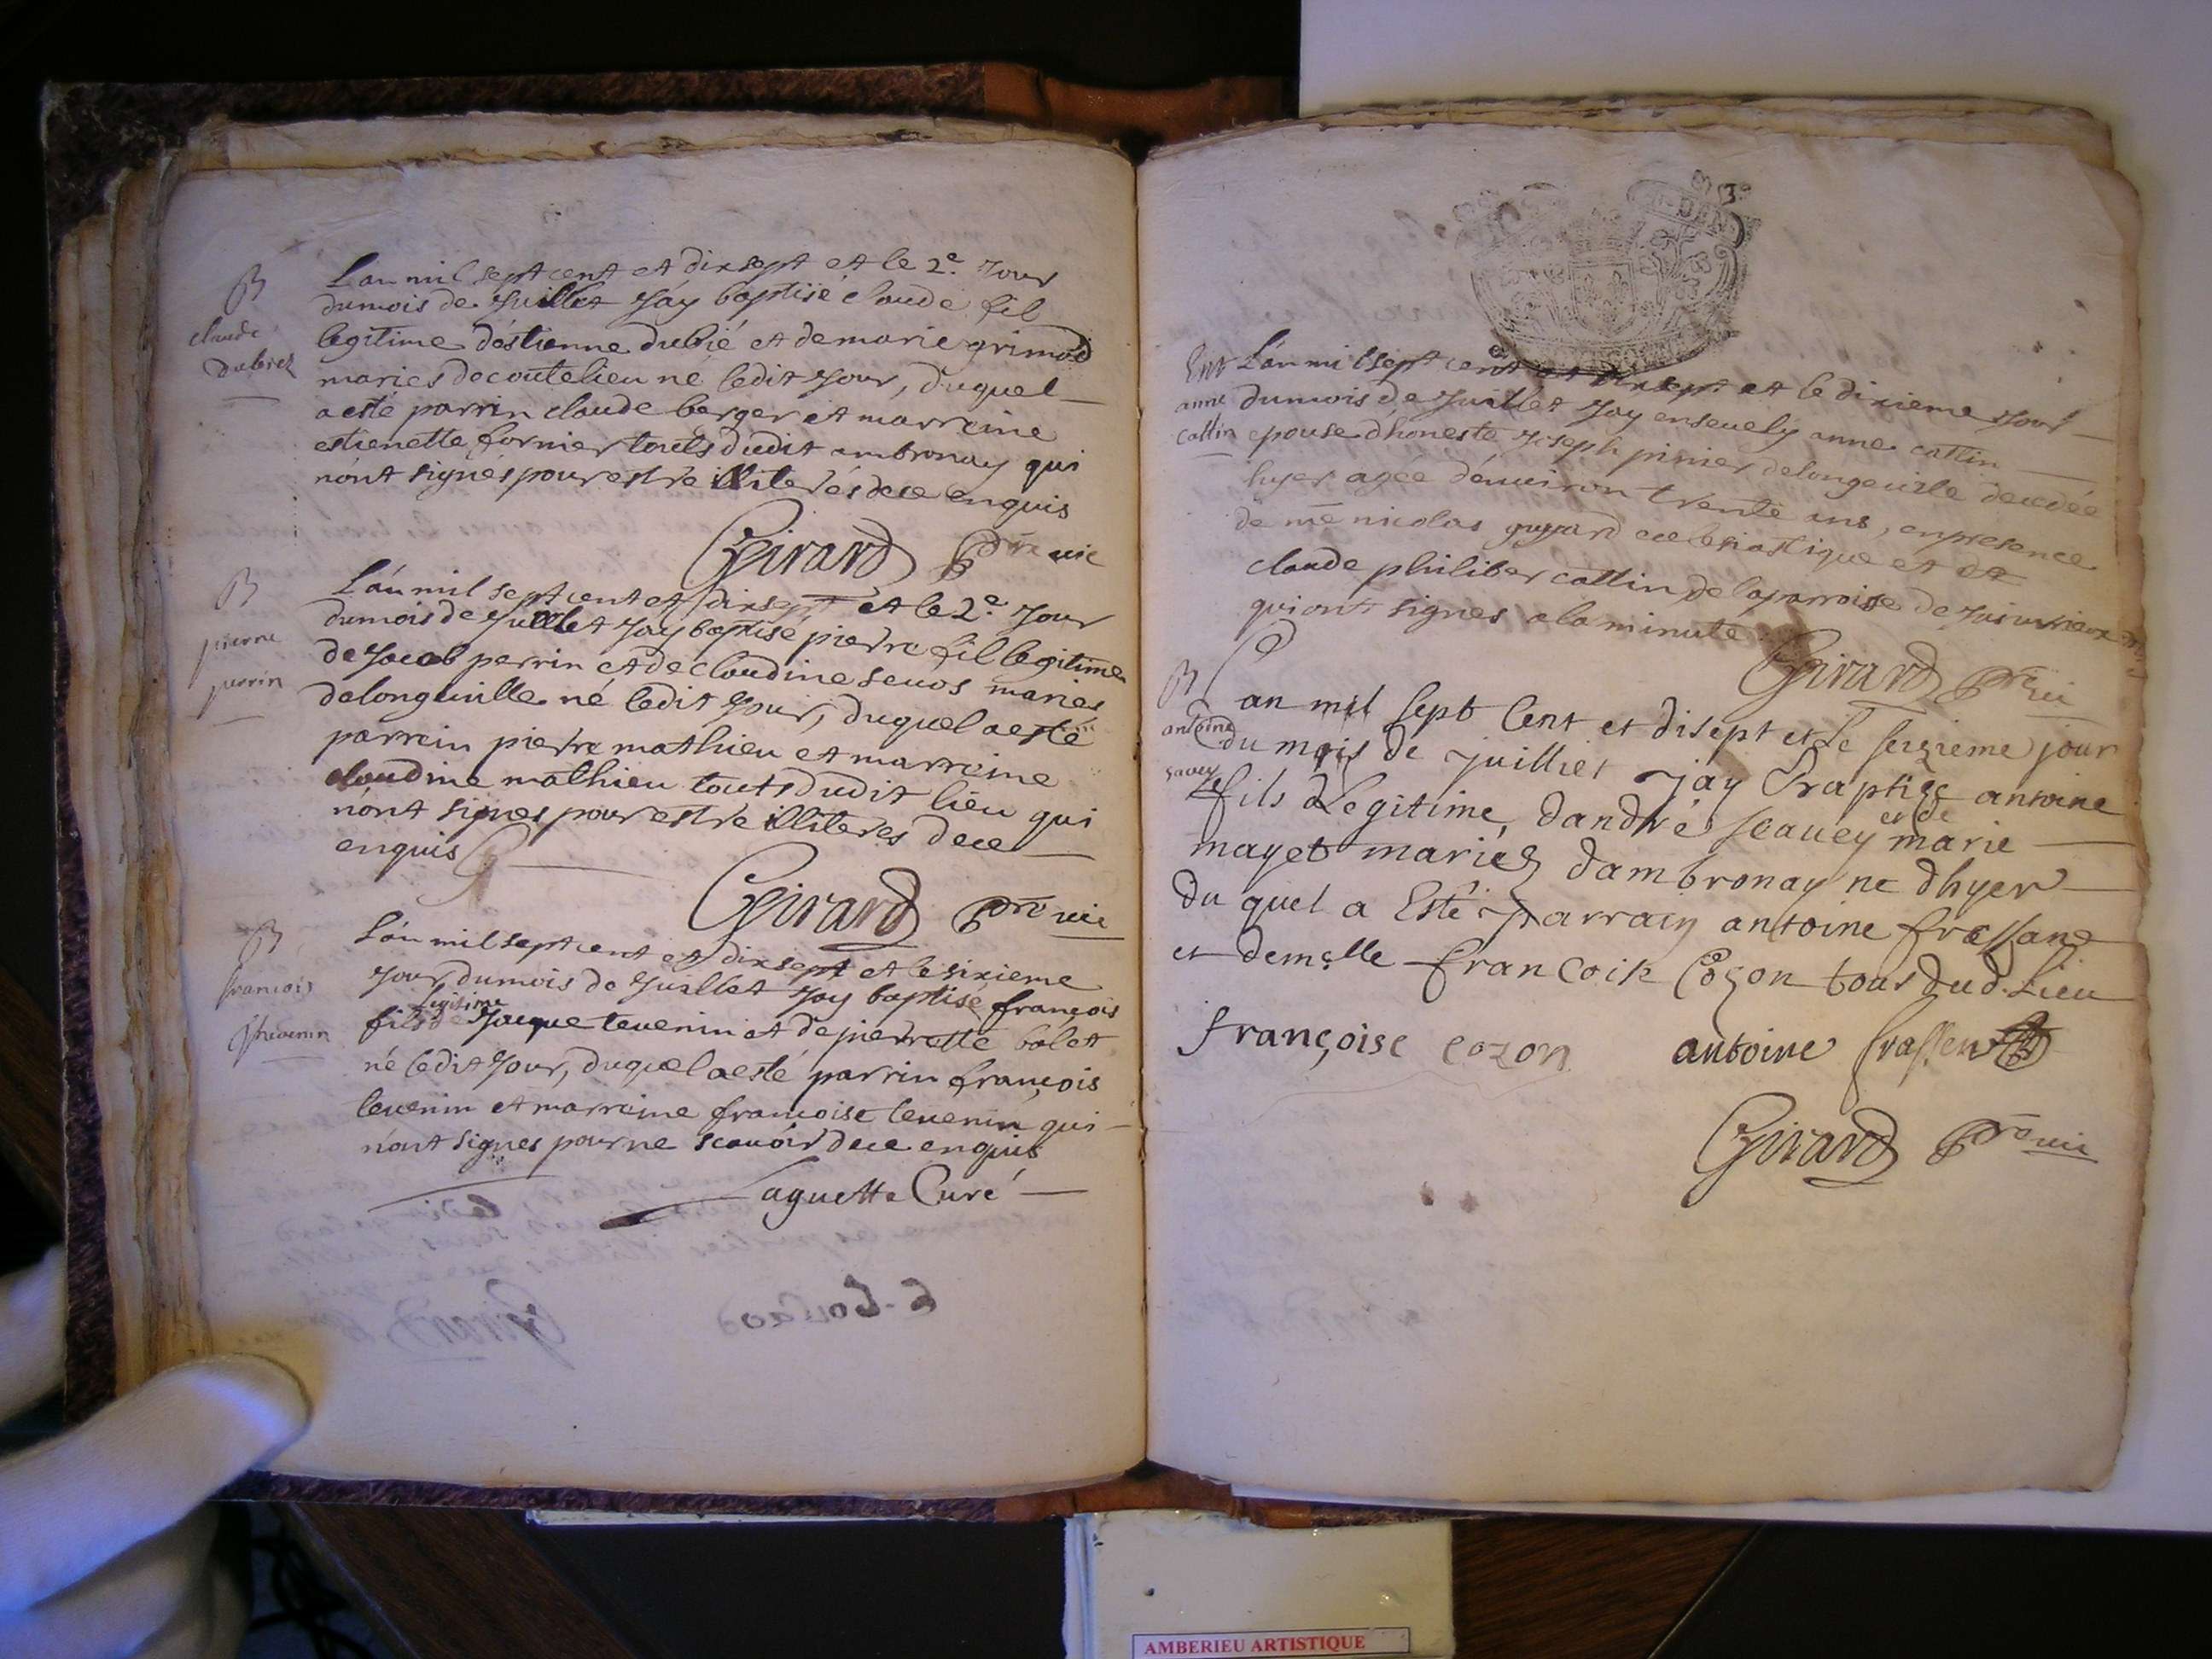 B
claude
Dubiez
L'an mil sept cent et dixsept et le 2e. Jour
dumois de Juillet J'áy baptisé claude fil
legitime d'éstienne dubié et demarie grimod
mariés decoutelieu né ledit Jour, duquel
a esté parrin claude berger et marreine
estienette fornier touts dudit ambronay qui
n'ont signés pour estre illiterés dece enquis
Girard ptre vic
B
pierre
perrin
L'an mil sept cent et dixsept et le 2e. Jour
dumois de Juillet J'ay baptisé pierre fil legitime
de Jacob perrin et de claudine seuos mariés
delonguille né ledit Jour, duquel a esté
parrein pierre mathieu et marreine
claudine mathieu touts dudit lieu qui
n'ont signés pour estre illiteres dece
enquis
Girard ptre vic
B
francois
Theuenin
L'an mil sept cent et dixsept et le sixieme
Jour dumois de Juillet J'ay baptisé françois
legitime
fils de Jacque teuenin et de pierrette bolet
né ledit Jour, duquel a esté parrin françois
teuenin et marreine francoise teuenin qui
n'ont signes pour ne scauoir dece enquis
Laguette Curé
Ent
anne
cattin
L'an mil sept cent et dixsept et le dixieme Jour
dumois de Juillet J'ay enseuely anne cattin
epouse d'honeste Joseph pinier delongeuile decedée
hyer agée d'enuiron trente ans, enpresence
de me nicolas guyard ecclesiastique et de
claude philiber cattin de laparroisse de Juiurieux
qui ont signés a la minute
Girard ptre vic
B
antoine
sauey
Lan mil sept Cent et disept et le seizieme jour
du mois de juilliet jay Baptise antoine
fils Legitime, dandré scauey et de marie
mayet mariez dambronay ne dhyer
du quel a Esté parrain antoine frassane
et demelle francoise Cozon tous dud. Lieu
françoise cozon antoine frassen
Girard ptre vic
AMBERIEU ARTISTIQUE